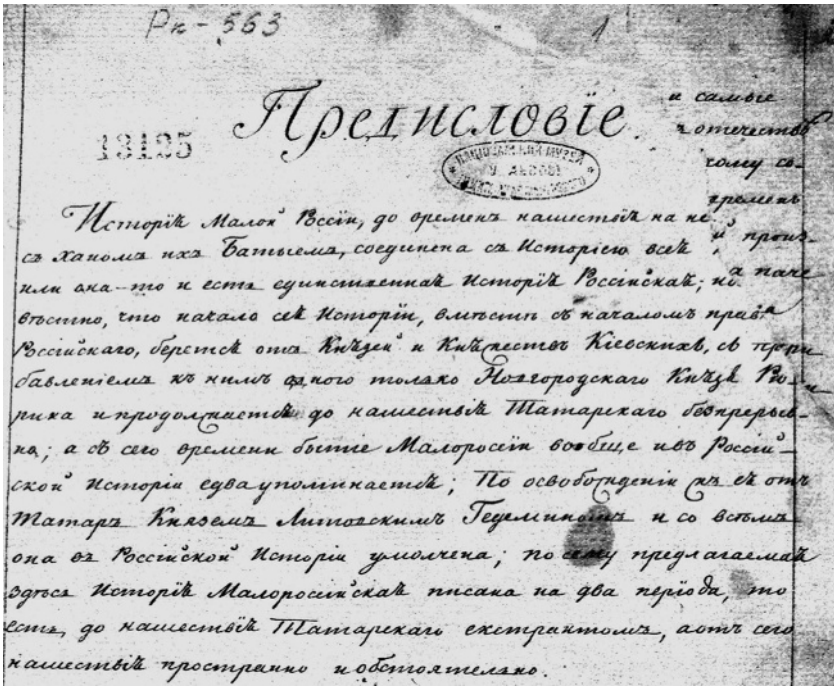 Рк-563
1
Предисловïе.
и самые
13125
кому со-
времень
Исторiѣ Малой Россiи, до временъ нашествiѣ на не
съ ханомъ ихъ Батыемъ, соединена съ Исторiею всей
произ-
или она-то и есть единственнаѣ Исторiѣ Россiйскаѣ;
паче
вѣстно, что начало сеѣ Исторiи, вмѣстѣ съ началомъ прав
Россiйскаго, беретсѣ отъ Кнѣзей и Кнѣжествъ Кiевскихъ, съ при
бавленiемъ къ нимъ одного только Новгородскаго Кнѣзѣ Рю-
рика и продолжаетсѣ до нашествiѣ Татарскаго безпрерыв-
но; а съ сего времени бытiе Малоросiи вообще и въ Россiй-
ской Исторiи едва упоминаетсѣ; По освобожденiи же еѣ отъ
Татаръ Княземъ Литовскимъ Гедеминомъ и со всѣмъ
она въ Россiйской Исторiи умолчена; посему предлагаемаѣ
здѣсь Исторiѣ Малоросiйскаѣ писана на два перiода, то
есть, до нашествiѣ Татарскаго екстрактомъ, а отъ сего
нашествiѣ пространно и обстоятельно.